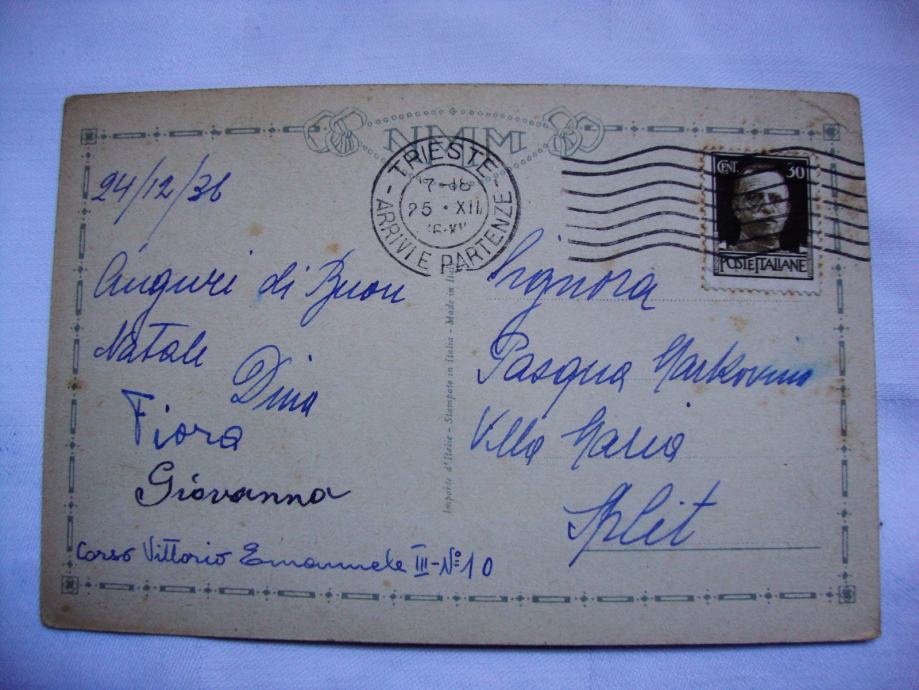 NMM
TRIESTE
ARRIVI E PARTENZE
25 · XII
CENT. 30
POSTE ITALIANE
24/12/36
Auguri di Buon
Natale
Dina
Fiora
Giovanna
Corso Vittorio Emanuele III - N° 10
Importé d'Italie - Stampato in Italia - Made in Italy
Signora
Pasqua Markovina
Villa Maria
Split